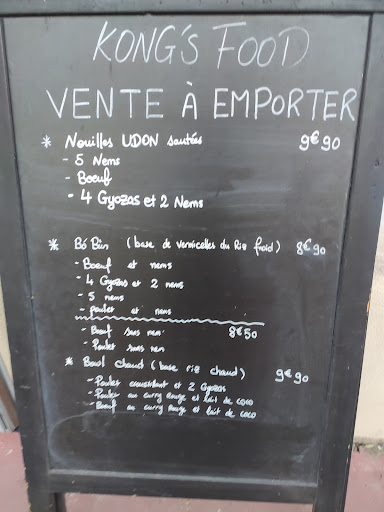 KONG'S FOOD
VENTE À EMPORTER
* Nouilles UDON sautées 9€90
- 5 Nems
- Boeuf
- 4 Gyozas et 2 Nems
* Bó Bún (base de vermicelles du Riz froid) 8€90
- Boeuf et nems
- 4 Gyozas et 2 nems
- 5 nems
- poulet et nems
- Boeuf sans nem 8€50
- Poulet sans nem
* Bowl chaud (base riz chaud) 9€90
- Poulet croustillant et 2 Gyozas
- Poulet au curry Rouge et lait de coco
- Boeuf au curry Rouge et lait de coco